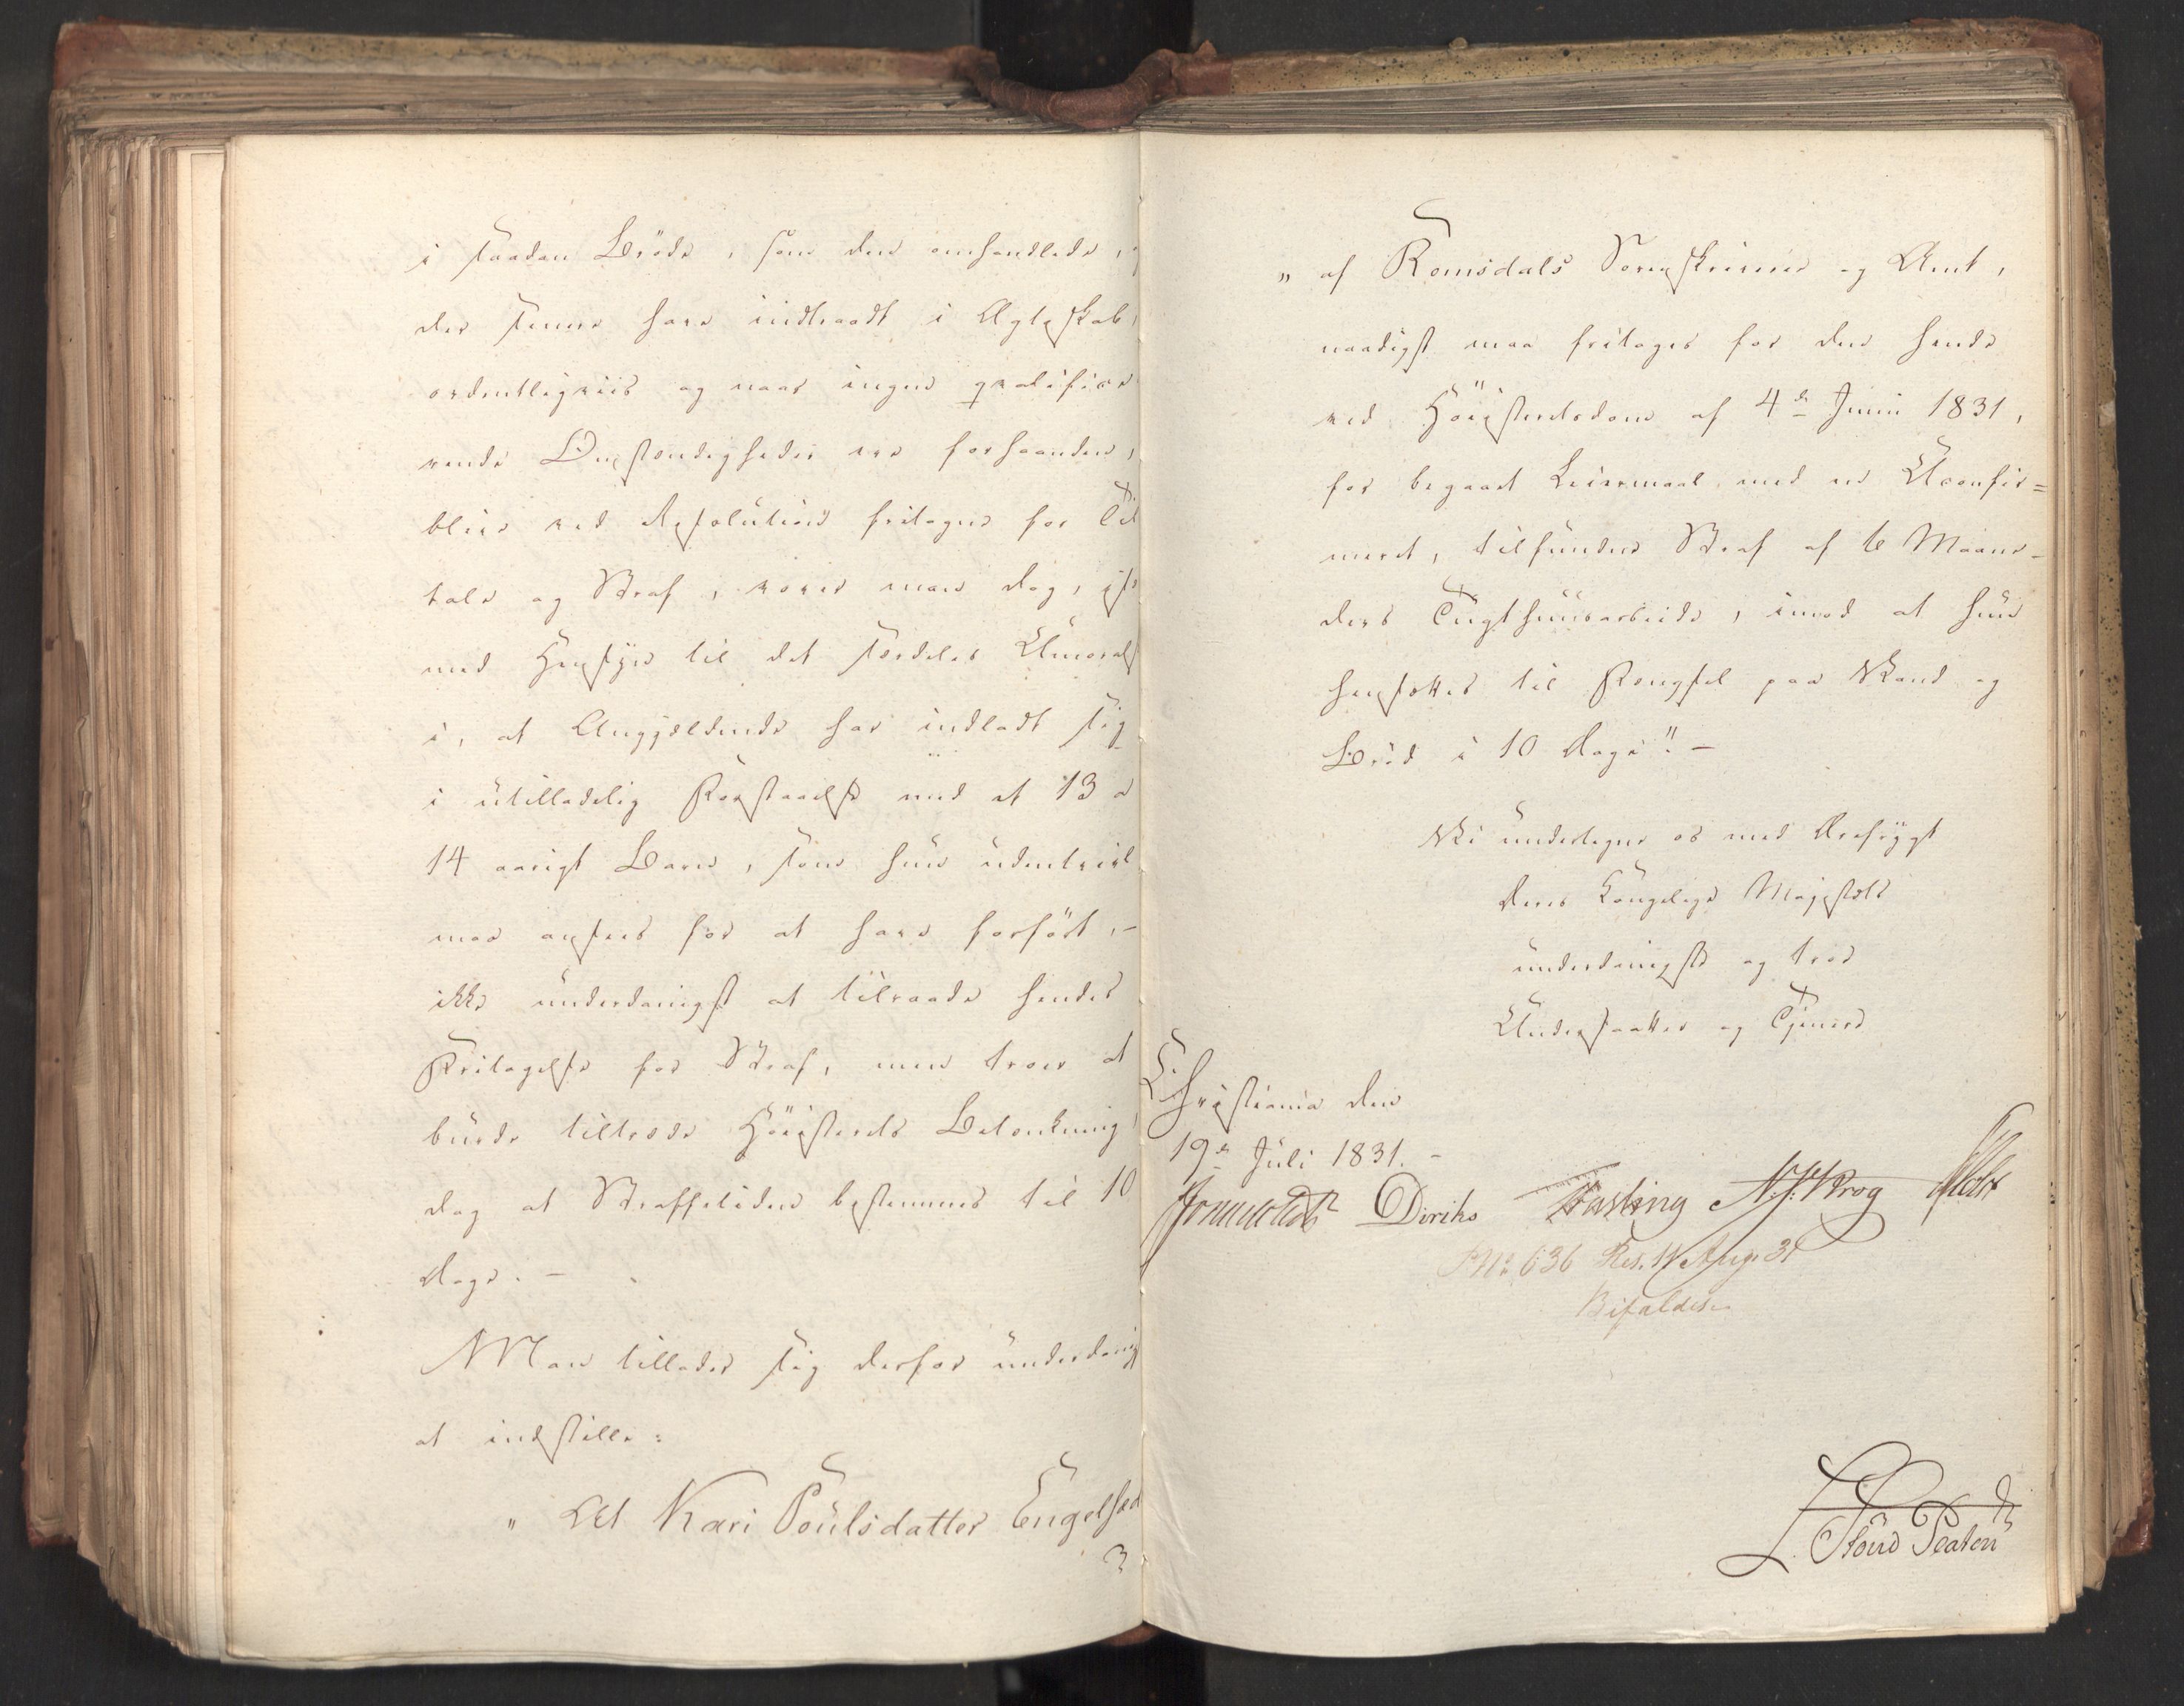 i saadan Brøde, som den omhandlede,
der senere have indtraadt i Ægteskab,
ordentligviis og naar ingen qvalifice
rende Omstændigheder ere forhaanden,
blive ved Resolution fritagne for Til
tale og Straf, vover man dog, ist
med Hensyn til det særdeles Umoralsk
i, at Angjældende har indladt sig
i utilladelig Forstaaelse med et 13 a
14 aarigt Barn, som hun udentvivl
maa ansees for at have forført, -
ikke underdanigst at tilraade hendes
Fritagelse for Straf, men troer at
burde tiltræde Höiesterets Betænkning
dog at Straffetiden bestemmes til 10
Dage. -
Man tillader sig derfor underdanig
at indstille:
" At Kari Poulsdatter Engelsæd
" af Romsdals Sorenskriverie og Amt,
naadigst maa fritages for den hende
ved Höiesteretsdom af 4de Junii 1831,
for begaaet Leiermaal med en Uconfir=
meret, tilfundne Straf af 6 Maane-
ders Tugthuusarbeide, imod at hun
hensættes til Fængsel paa Vand og
Brød i 10 Dage". -
Vi undertegne os med Ærefrygt
Deres Kongelige Majestæts
underdanigste og troe
Undersaatter og Tjenere
Christiania den
19de Juli 1831. -
Diriks Fasting N. J. Krog
No 636 Res. 11 Aug. 31
Bifaldes.
L. Stoud Platou